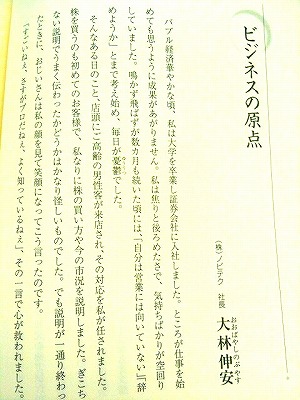 ビジネスの原点
(株)ノビテク 社長
おおばやしのぶやす
大林伸安
バブル経済華やかな頃、私は大学を卒業し証券会社に入社しました。ところが仕事を始
めても思うように成果があがりません。私は焦りと後ろめたさで、気持ちばかりが空回り
していました。鳴かず飛ばずが数カ月も続いた頃には、「自分は営業には向いていない」「辞
めようか」とまで考え始め、毎日が憂鬱でした。
そんなある日のこと、店頭にご高齢の男性客が来店され、その対応を私が任されました。
株を買うのも初めてのお客様で、私なりに株の買い方や今の市況を説明しました。ぎこち
ない説明でうまく伝わったかどうかはかなり怪しいものでした。でも説明が一通り終わっ
たときに、おじいさんは私の顔を見て笑顔になってこう言ったのです。
「すごいねぇ、さすがプロだねぇ、よく知っているねぇ」。その一言で心が救われました。